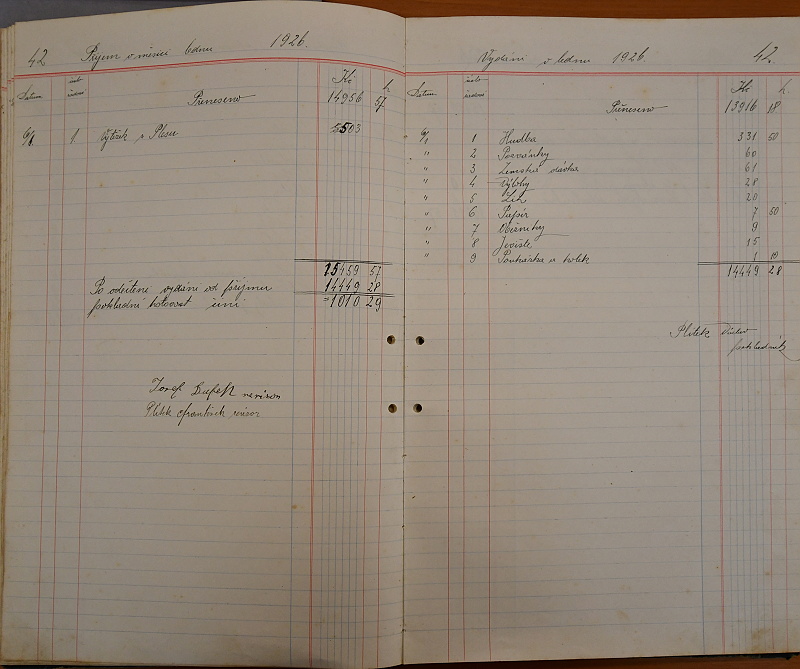 42 Příjem v měsíci lednu 1926.
Datum Kč h
Přeneseno 14956 57
6/1. 1. Výtěžek z Plesu 503
15459 57
Po odečtení vydání od příjmu 14449 28
pokladní hotovost činí =1010 29
Josef revisor
Plítek František revisor
Vydání v lednu 1926. 42.
Datum Kč h.
Přeneseno 13916 18
6/1 1 Hudba 331 50
" 2 Pozvánky 60
" 3 Zemská dávka 61
" 4 Výlohy 28
" 5 20
" 6 Papír 7 50
" 7 9
" 8 Jeviště 15
" 9 a kolek 1 10
14449 28
Plítek Václav
pokladník